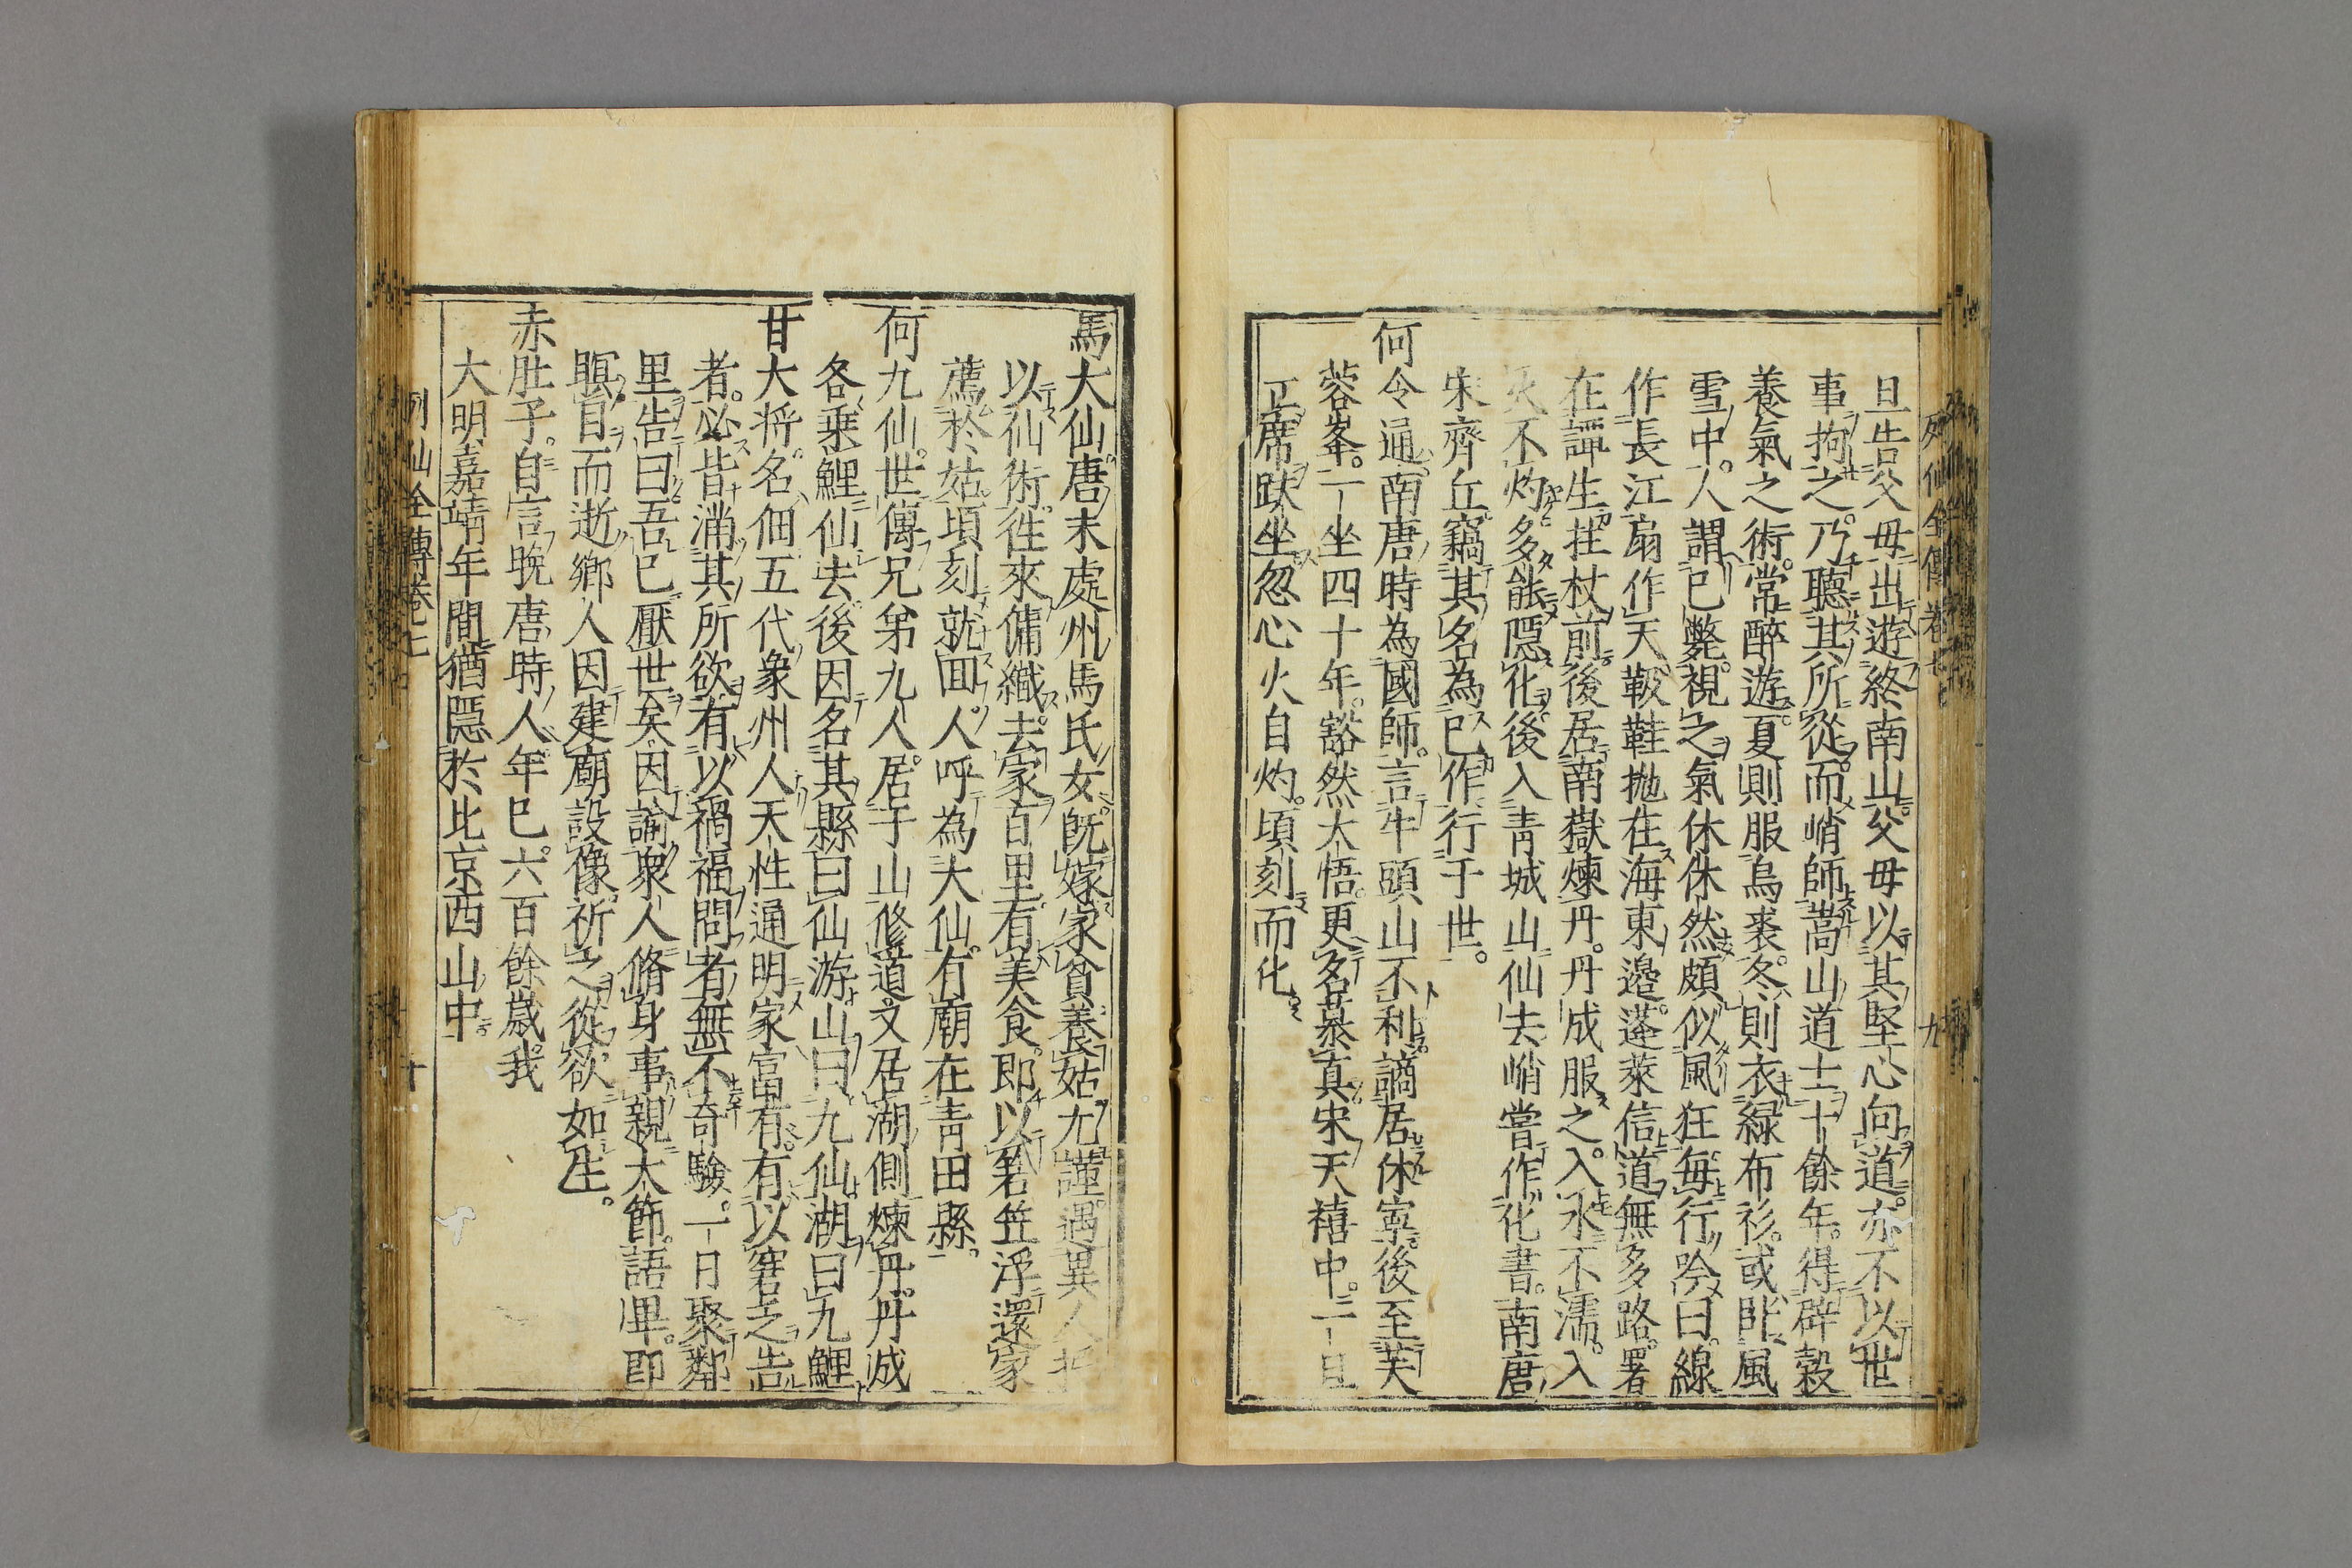 列仙全傳卷七
九
旦告父母出遊終南山父母以其堅心向道亦不以世
事拘之乃聽其所從而峭師嵩山道士十餘年得辟穀
養氣之術常醉遊夏則服烏裘冬則衣緑布衫或臥風
雪中人謂已斃視之氣休休然頗似風狂每行吟曰線
作長江扇作天靸鞋拋在海東邊蓬萊信道無多路署
在譚生拄杖前後居南嶽煉丹丹成服之入水不濡入
火不灼多能隱化後入青城山仙去峭嘗作化書南唐
宋齊丘竊其名為已作行于世
何令通南唐時為國師言牛頭山不利謫居休寧後至芙
蓉峯一坐四十年豁然大悟更名慕真宋天禧中一旦
正席趺坐忽心火自灼頃刻而化
馬大仙唐末處州馬氏女既嫁家貧養姑尤謹遇異人授
以仙術徃來傭織去家百里有美食即以箬笠浮還家
薦於姑頃刻就回人呼為大仙有廟在青田縣
何九仙世傳兄弟九人居于山修道又居湖側煉丹丹成
各乗鯉仙去後因名其縣曰仙游山曰九仙湖曰九鯉
甘大将名佃五代象州人天性通明家富有有以窘乏告
者必皆滿其所欲有以禍福問者無不奇驗一日聚鄰
里告曰吾已厭世矣因諭衆人脩身事親大節語畢即
瞑目而逝鄉人因建廟設像祈之從欲如生
赤肚子自言晚唐時人年已六百餘歳我
大明嘉靖年間猶隱於北京西山中
列仙全傳卷七
十